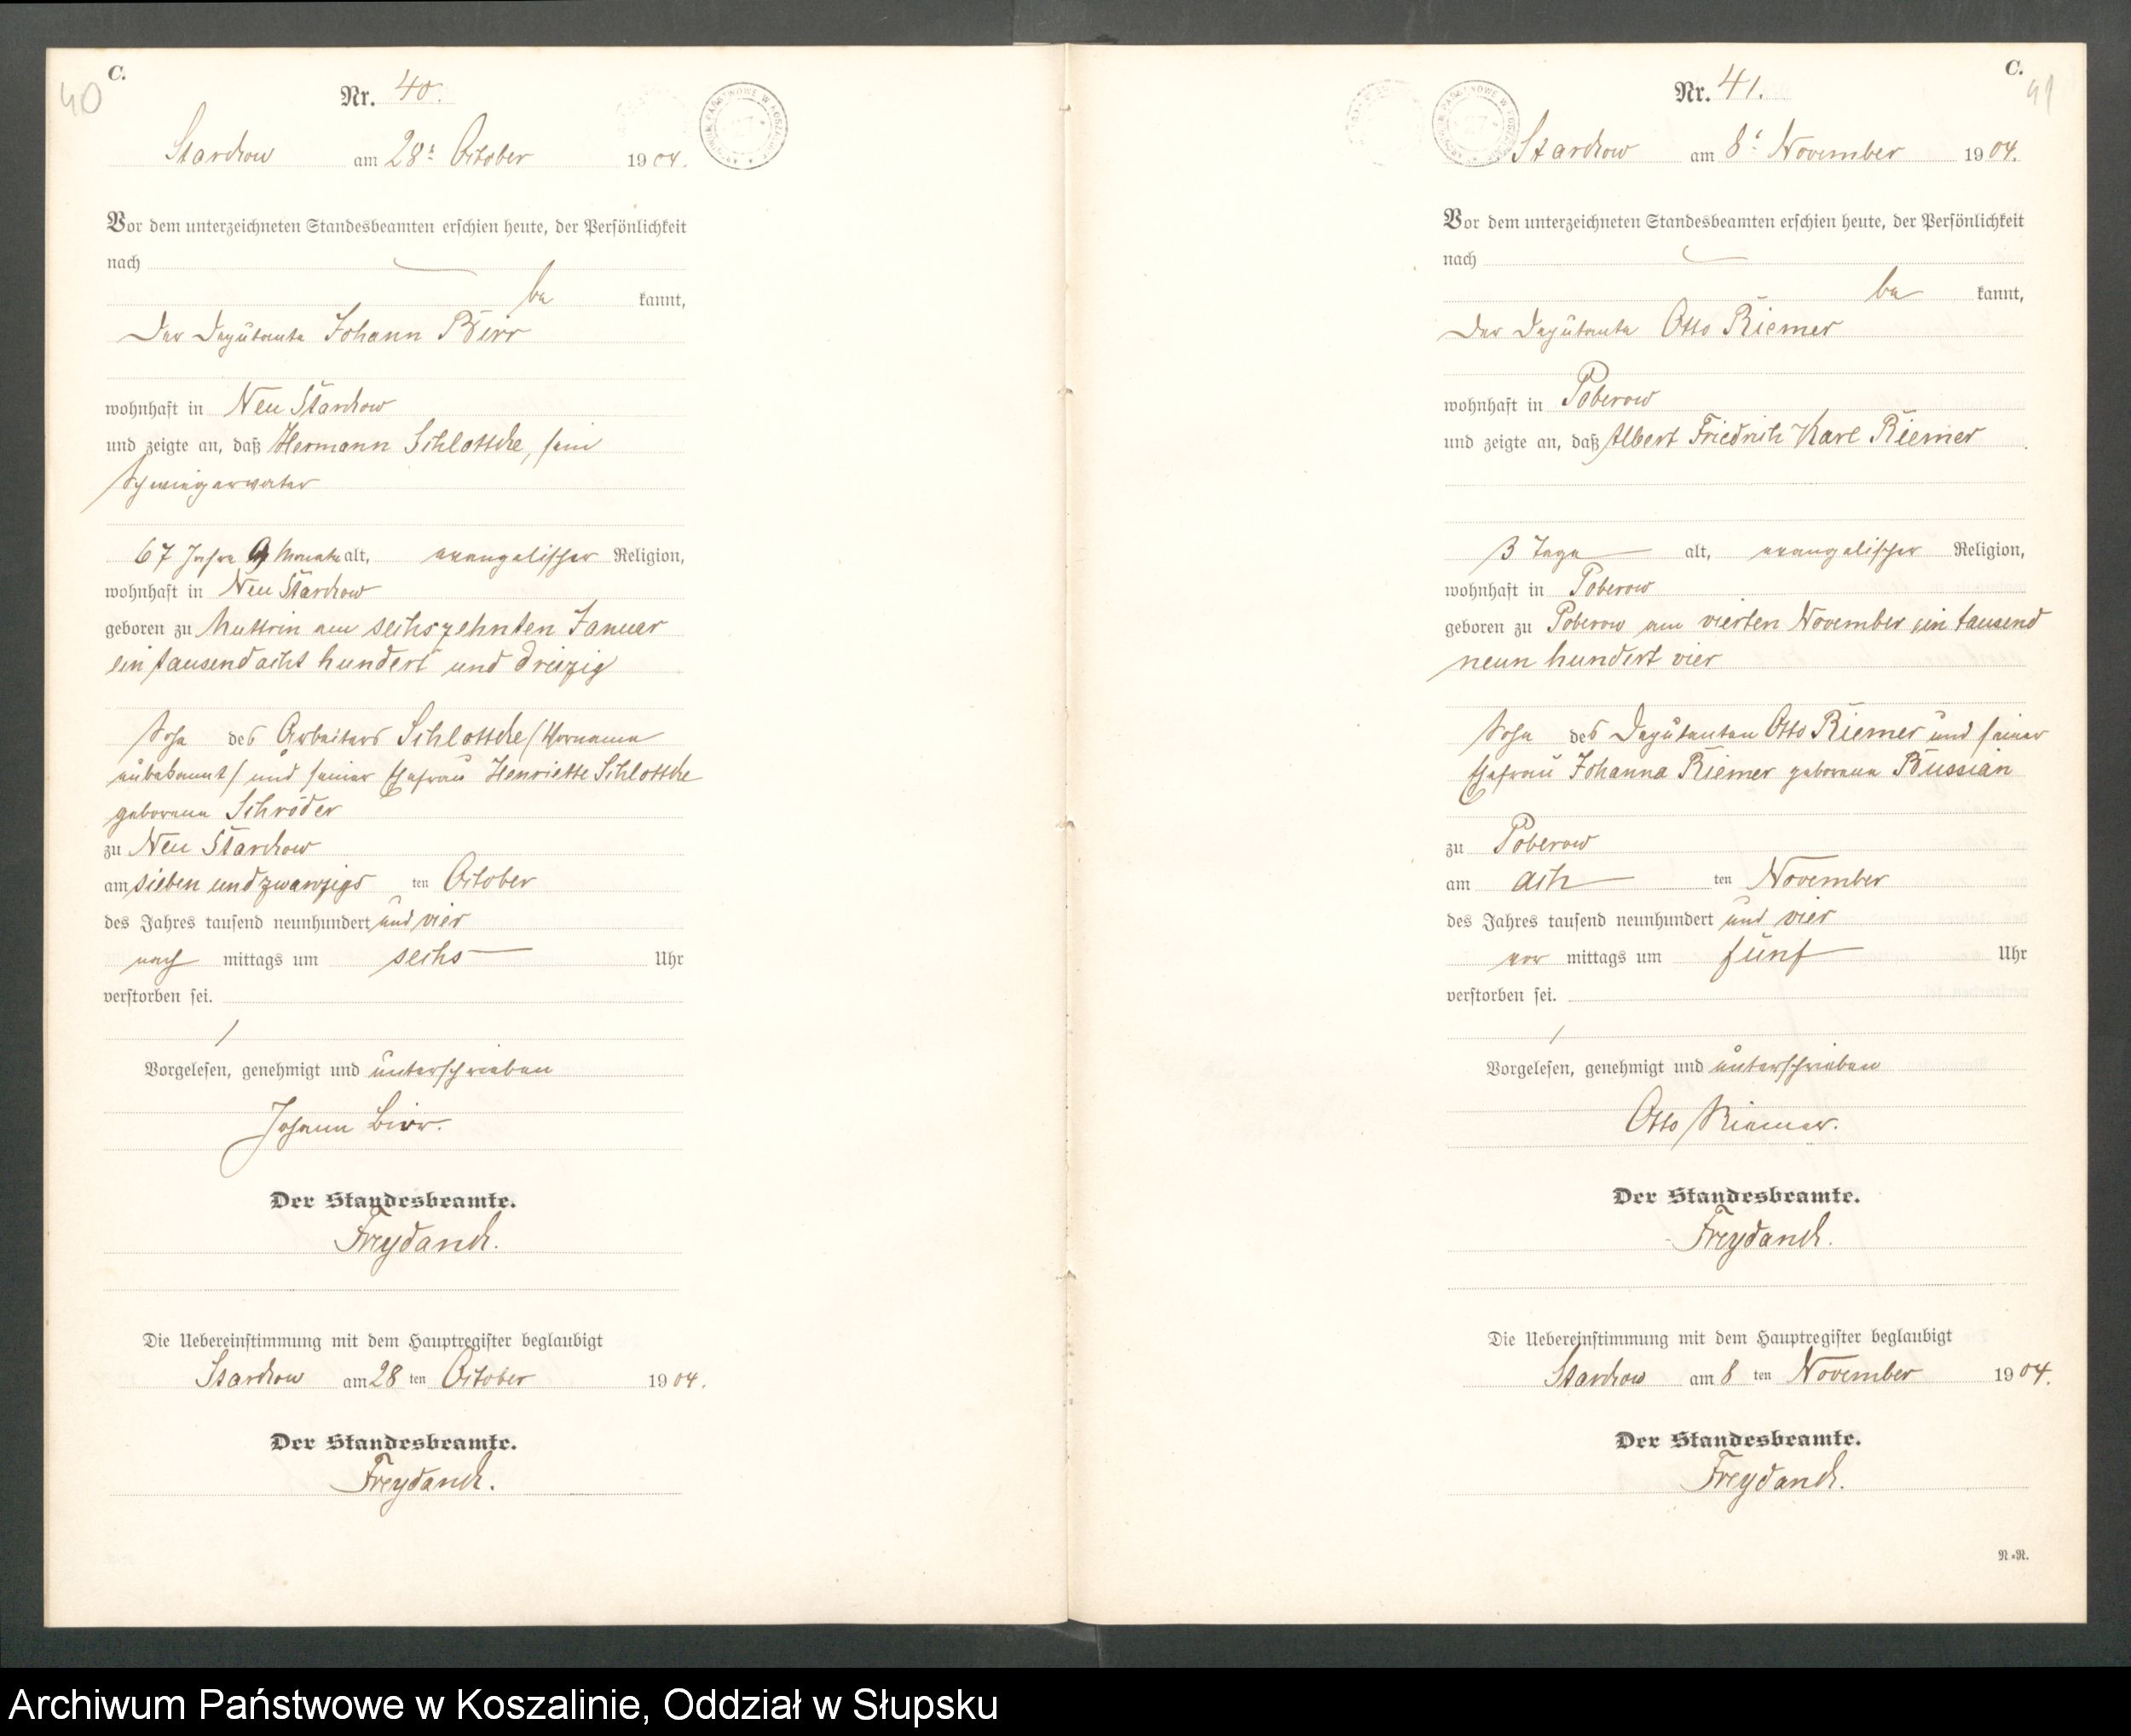 C.
40
Nr. 40.
Starckow am 28t October 1904.
Vor dem unterzeichneten Standesbeamten erschien heute, der Persönlichkeit
nach
be kannt,
Der Deputante Johann Birr
wohnhaft in Neu Starckow
und zeigte an, daß Hermann Schlottke, sein
Schwiegervater
67 Jahre 9 Monate alt, evangelischer Religion,
wohnhaft in Neu Starckow
geboren zu Muttrin am sechszehnten Januar
ein tausend acht hundert und dreizig
Sohn des Arbeiters Schlottke / Vorname
unbekannt / und seiner Ehefrau Henriette Schlottke
geborene Schröder
zu Neu Starckow
am sieben und zwanzigs ten October
des Jahres tausend neunhundert und vier
nach mittags um sechs Uhr
verstorben sei.
Vorgelesen, genehmigt und unterschrieben
Johann Birr.
Der Standesbeamte.
Freydanck.
Die Uebereinstimmung mit dem Hauptregister beglaubigt
Starckow am 28 ten October 1904.
Der Standesbeamte.
Freydanck.
C.
41
Nr. 41.
Starckow am 8t November 1904.
Vor dem unterzeichneten Standesbeamten erschien heute, der Persönlichkeit
nach
be kannt,
Der Deputante Otto Riemer
wohnhaft in Poberow
und zeigte an, daß Albert Friedrich Karl Riemer
3 Tage alt, evangelischer Religion,
wohnhaft in Poberow
geboren zu Poberow am vierten November ein tausend
neun hundert vier
Sohn des Deputanten Otto Riemer und seiner
Ehefrau Johanna Riemer geborene Bussian
zu Poberow
am ach ten November
des Jahres tausend neunhundert und vier
vor mittags um fünf Uhr
verstorben sei.
Vorgelesen, genehmigt und unterschrieben
Otto Riemer.
Der Standesbeamte.
Freydanck.
Die Uebereinstimmung mit dem Hauptregister beglaubigt
Starckow am 8 ten November 1904.
Der Standesbeamte.
Freydanck.
N.-R.
Archiwum Państwowe w Koszalinie, Oddział w Słupsku